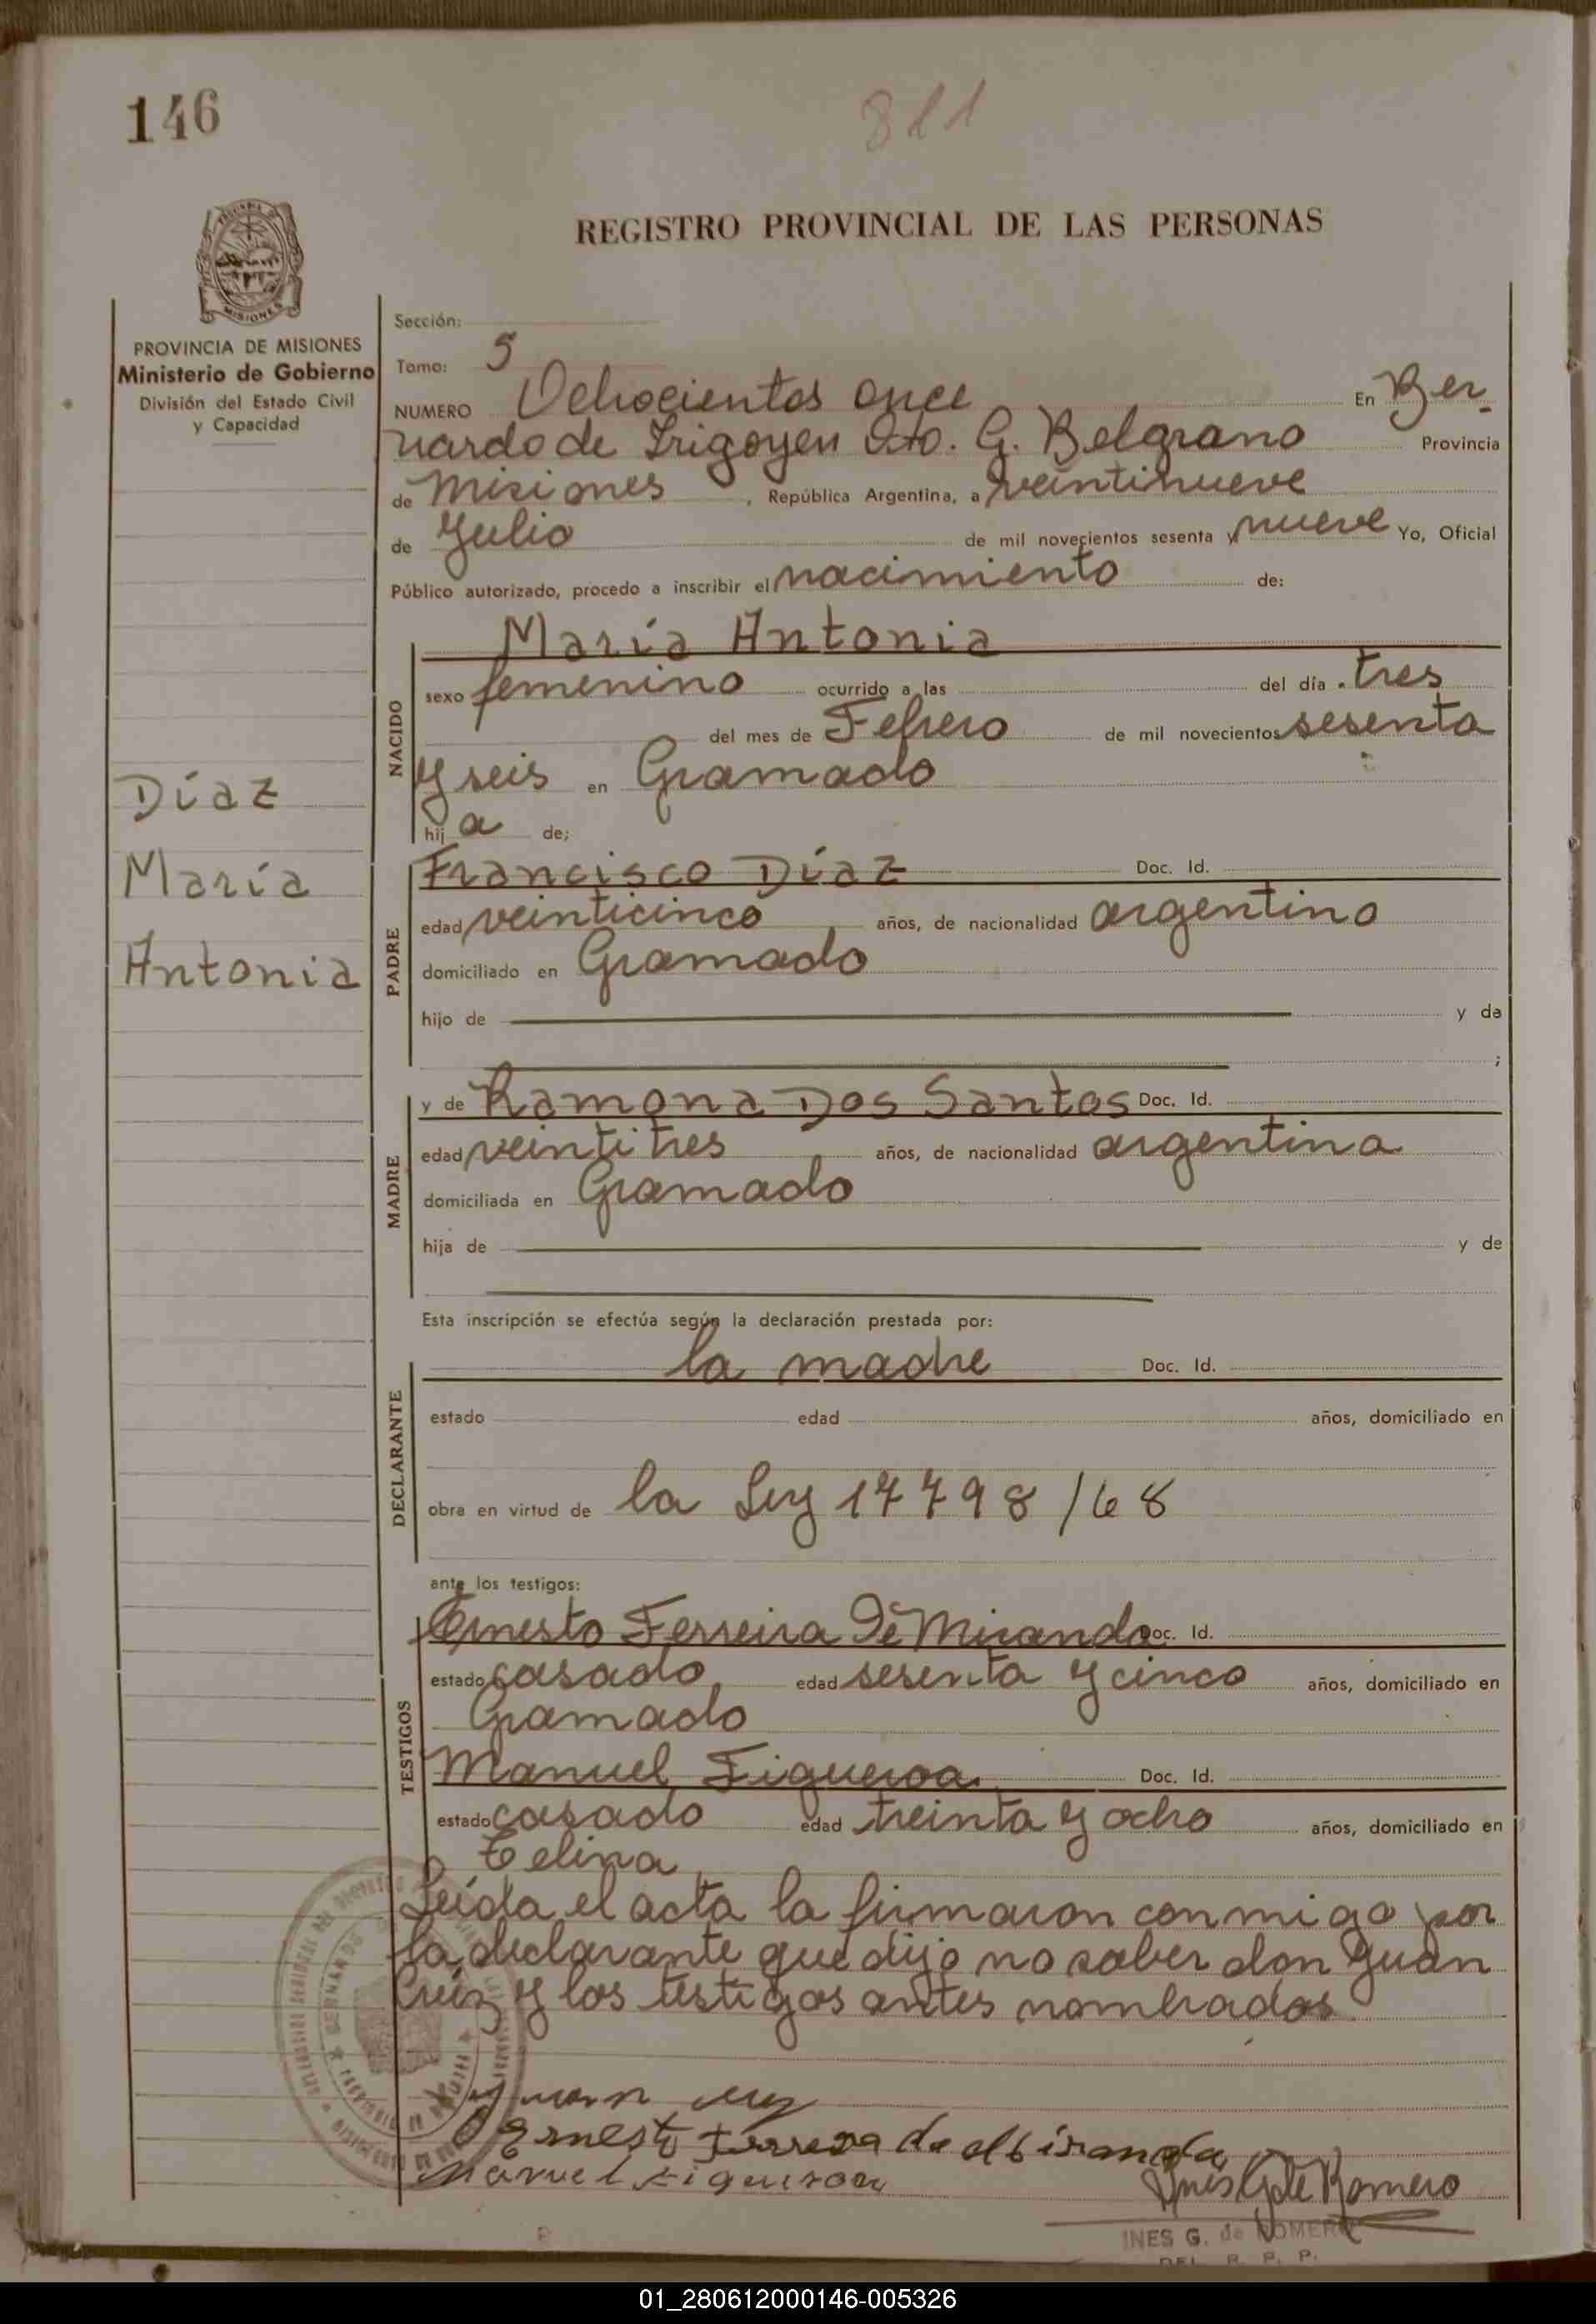 146
811
REGISTRO PROVINCIAL DE LAS PERSONAS
MISIONES
PROVINCIA DE MISIONES
Ministerio de Gobierno
División del Estado Civil
y Capacidad
Díaz
María
Antonia
Sección:
Tomo: 5
NUMERO Ochocientos once En Ber-
nardo de Irigoyen Dto. G. Belgrano Provincia
de Misiones, República Argentina, a veintinueve
de Julio de mil novecientos sesenta y nueve Yo, Oficial
Público autorizado, procedo a inscribir el nacimiento de:
NACIDO
María Antonia
sexo femenino ocurrido a las del día tres
del mes de Febrero de mil novecientos sesenta
y seis en Gramado
hij a de;
PADRE
Francisco Díaz Doc. Id.
edad veinticinco años, de nacionalidad argentino
domiciliado en Gramado
hijo de y de
;
MADRE
y de Ramona Dos Santos Doc. Id.
edad veintitres años, de nacionalidad argentina
domiciliada en Gramado
hija de y de
Esta inscripción se efectúa según la declaración prestada por:
DECLARANTE
la madre Doc. Id.
estado edad años, domiciliado en
obra en virtud de la Ley 17798/68
ante los testigos:
TESTIGOS
Ernesto Ferreira De Miranda Doc. Id.
estado casado edad sesenta y cinco años, domiciliado en
Gramado
Manuel Figueroa Doc. Id.
estado casado edad treinta y ocho años, domiciliado en
Celina
Leída el acta la firmaron conmigo por
la declarante que dijo no saber don Juan
Cruz y los testigos antes nombrados
Ernesto Ferrera de Miranda
Manuel Figueroa
Ines G de Romero
INES G. de ROMERO
DEL. R. P. P.
01_280612000146-005326